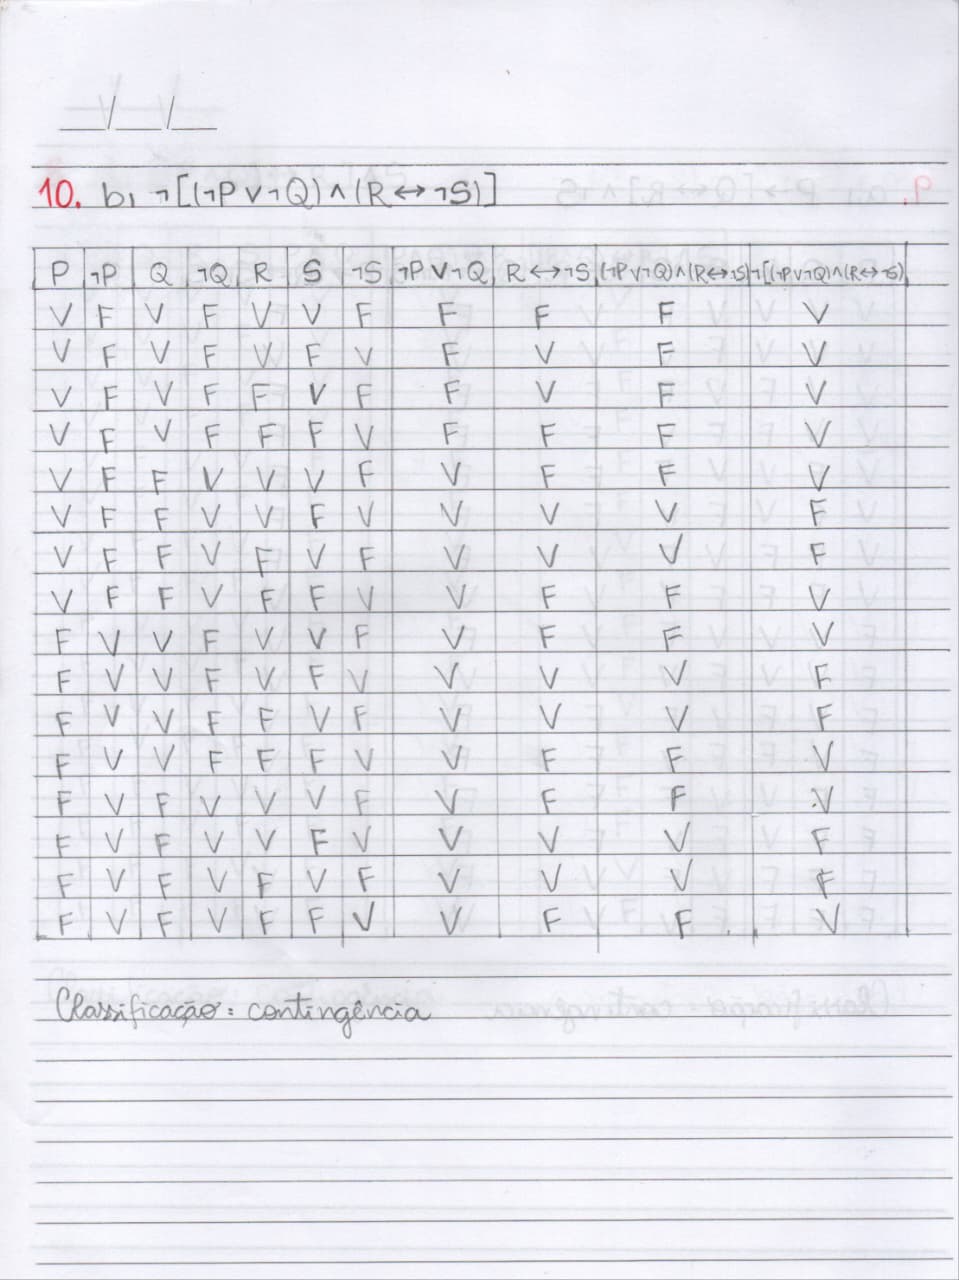 __/__/__
10. b, ¬[(¬P∨¬Q)∧(R↔¬S)]
P ¬P Q ¬Q R S ¬S ¬P∨¬Q R↔¬S (¬P∨¬Q)∧(R↔¬S) ¬[(¬P∨¬Q)∧(R↔¬S)]
V F V F V V F F F F V
V F V F V F V F V F V
V F V F F V F F V F V
V F V F F F V F F F V
V F F V V V F V F F V
V F F V V F V V V V F
V F F V F V F V V V F
V F F V F F V V F F V
F V V F V V F V F F V
F V V F V F V V V V F
F V V F F V F V V V F
F V V F F F V V F F V
F V F V V V F V F F V
F V F V V F V V V V F
F V F V F V F V V V F
F V F V F F V V F F V
Classificação: contingência